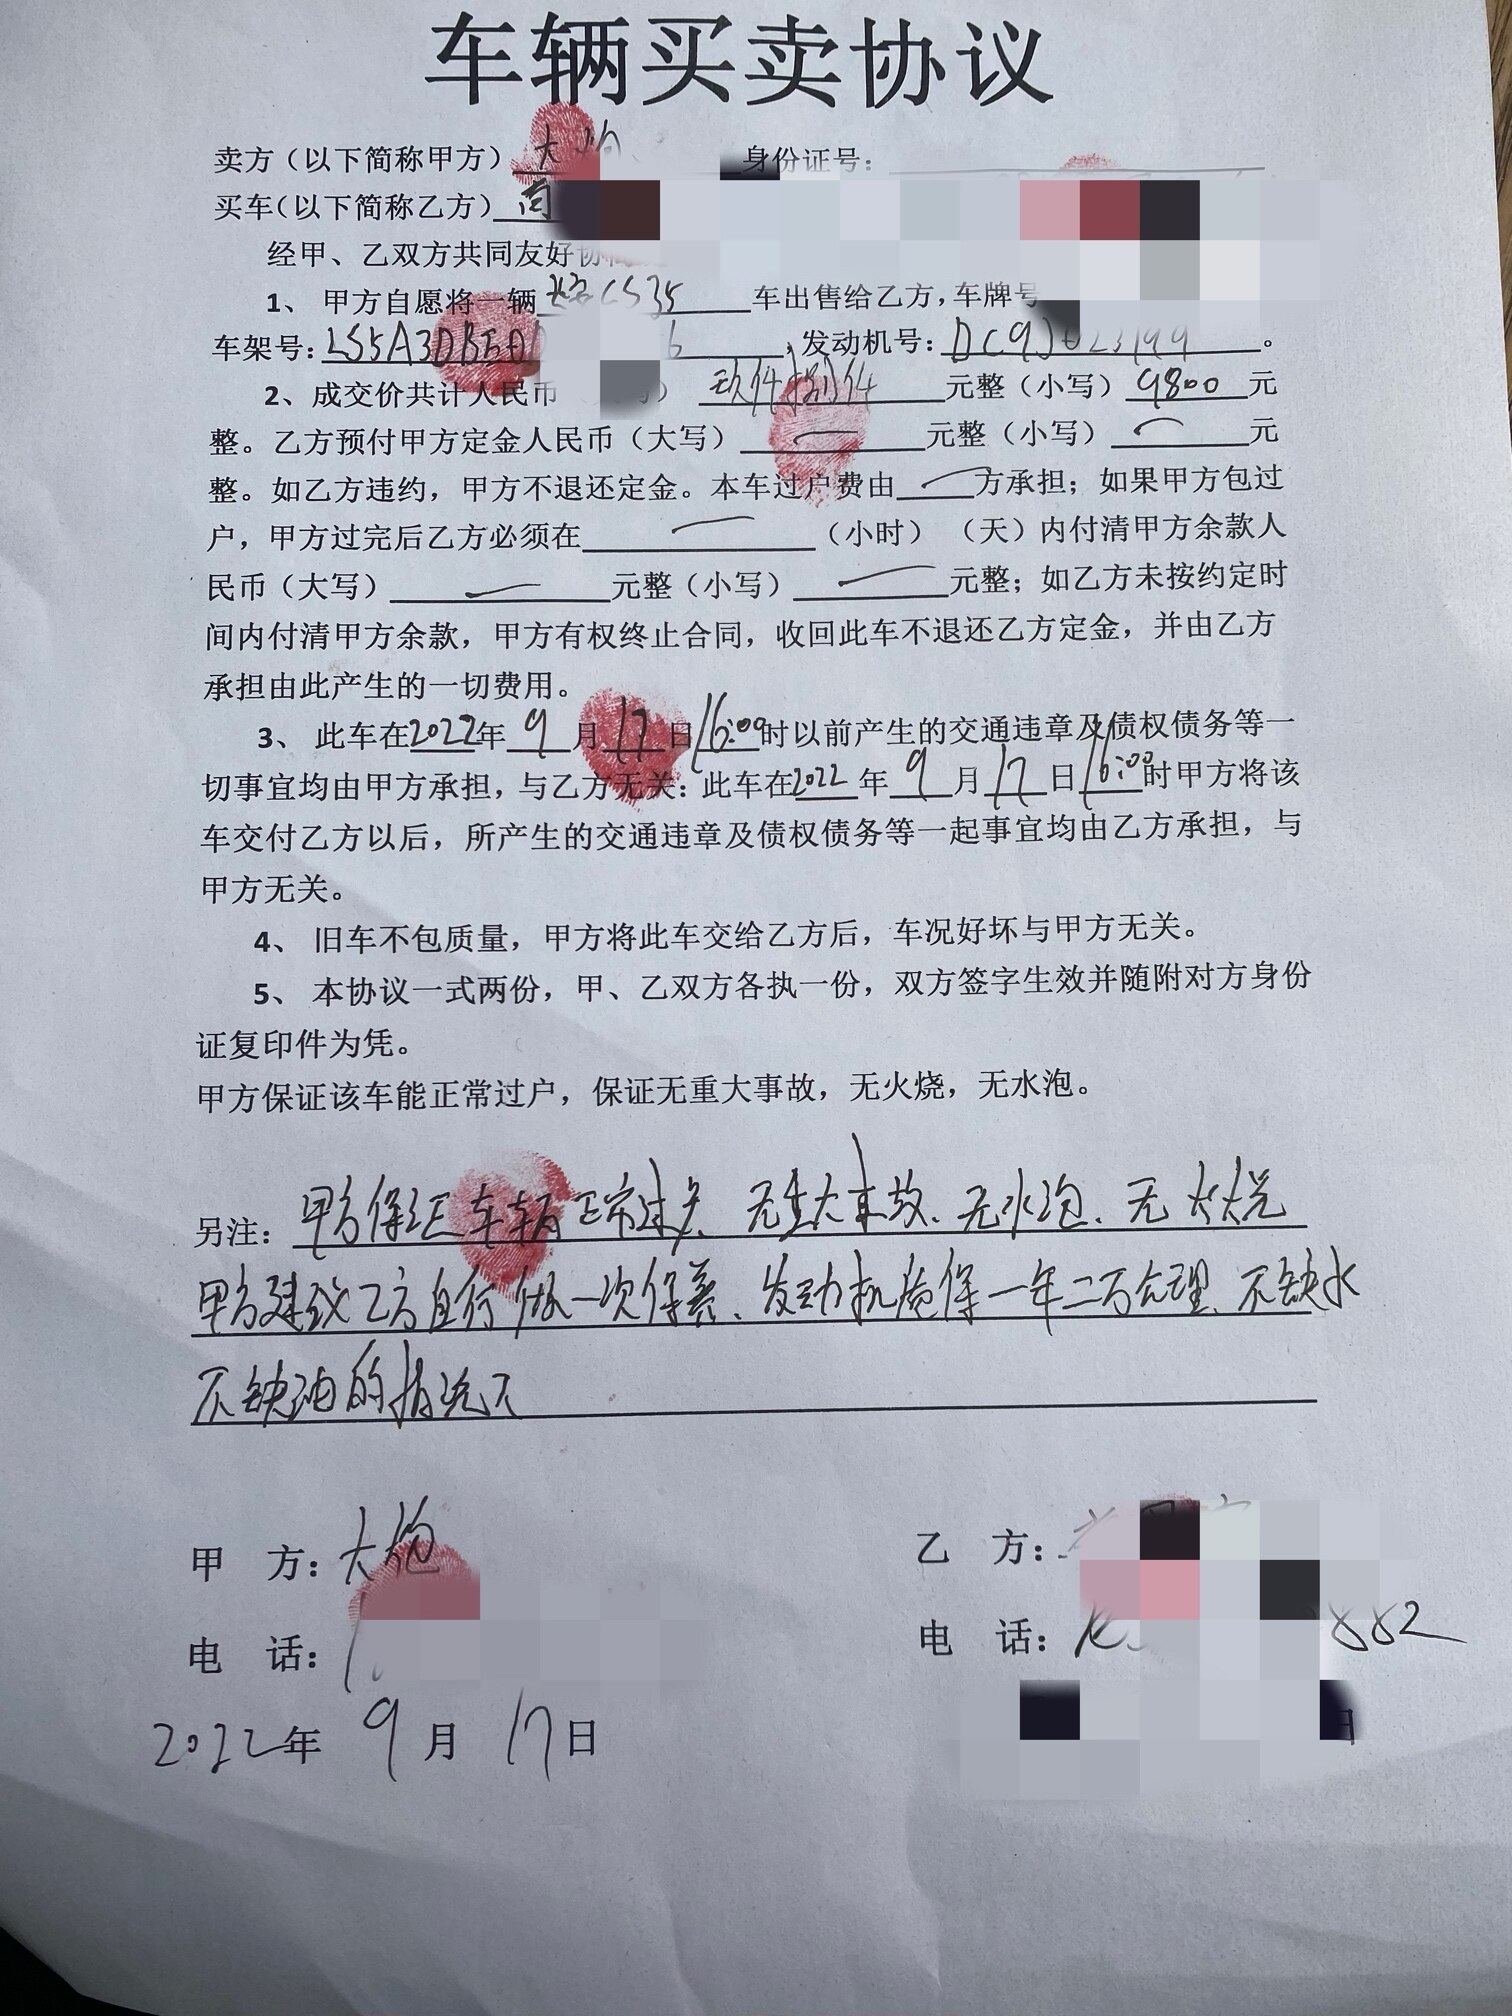 车辆买卖协议
卖方（以下简称甲方）大炮 身份证号：
买车（以下简称乙方）
经甲、乙双方共同友好协
1、 甲方自愿将一辆长安CS35车出售给乙方，车牌号
车架号：LS5A3DBE0 6，发动机号：DC9J023199。
2、成交价共计人民币 玖仟捌佰元整（小写）9800元
整。乙方预付甲方定金人民币（大写）—元整（小写）—元
整。如乙方违约，甲方不退还定金。本车过户费由—方承担；如果甲方包过
户，甲方过完后乙方必须在—（小时）（天）内付清甲方余款人
民币（大写）—元整（小写）—元整；如乙方未按约定时
间内付清甲方余款，甲方有权终止合同，收回此车不退还乙方定金，并由乙方
承担由此产生的一切费用。
3、 此车在2022年9月17日16:00时以前产生的交通违章及债权债务等一
切事宜均由甲方承担，与乙方无关：此车在2022年9月17日16:00时甲方将该
车交付乙方以后，所产生的交通违章及债权债务等一起事宜均由乙方承担，与
甲方无关。
4、 旧车不包质量，甲方将此车交给乙方后，车况好坏与甲方无关。
5、 本协议一式两份，甲、乙双方各执一份，双方签字生效并随附对方身份
证复印件为凭。
甲方保证该车能正常过户，保证无重大事故，无火烧，无水泡。
另注：甲方保证车辆正常过户、无重大事故、无水泡、无火烧
甲方建议乙方自行做一次保养、发动机质保一年二万公里、不缺水
不缺油的情况下
甲 方：大炮
乙 方：
电 话：
电 话： 882
2022年9月17日